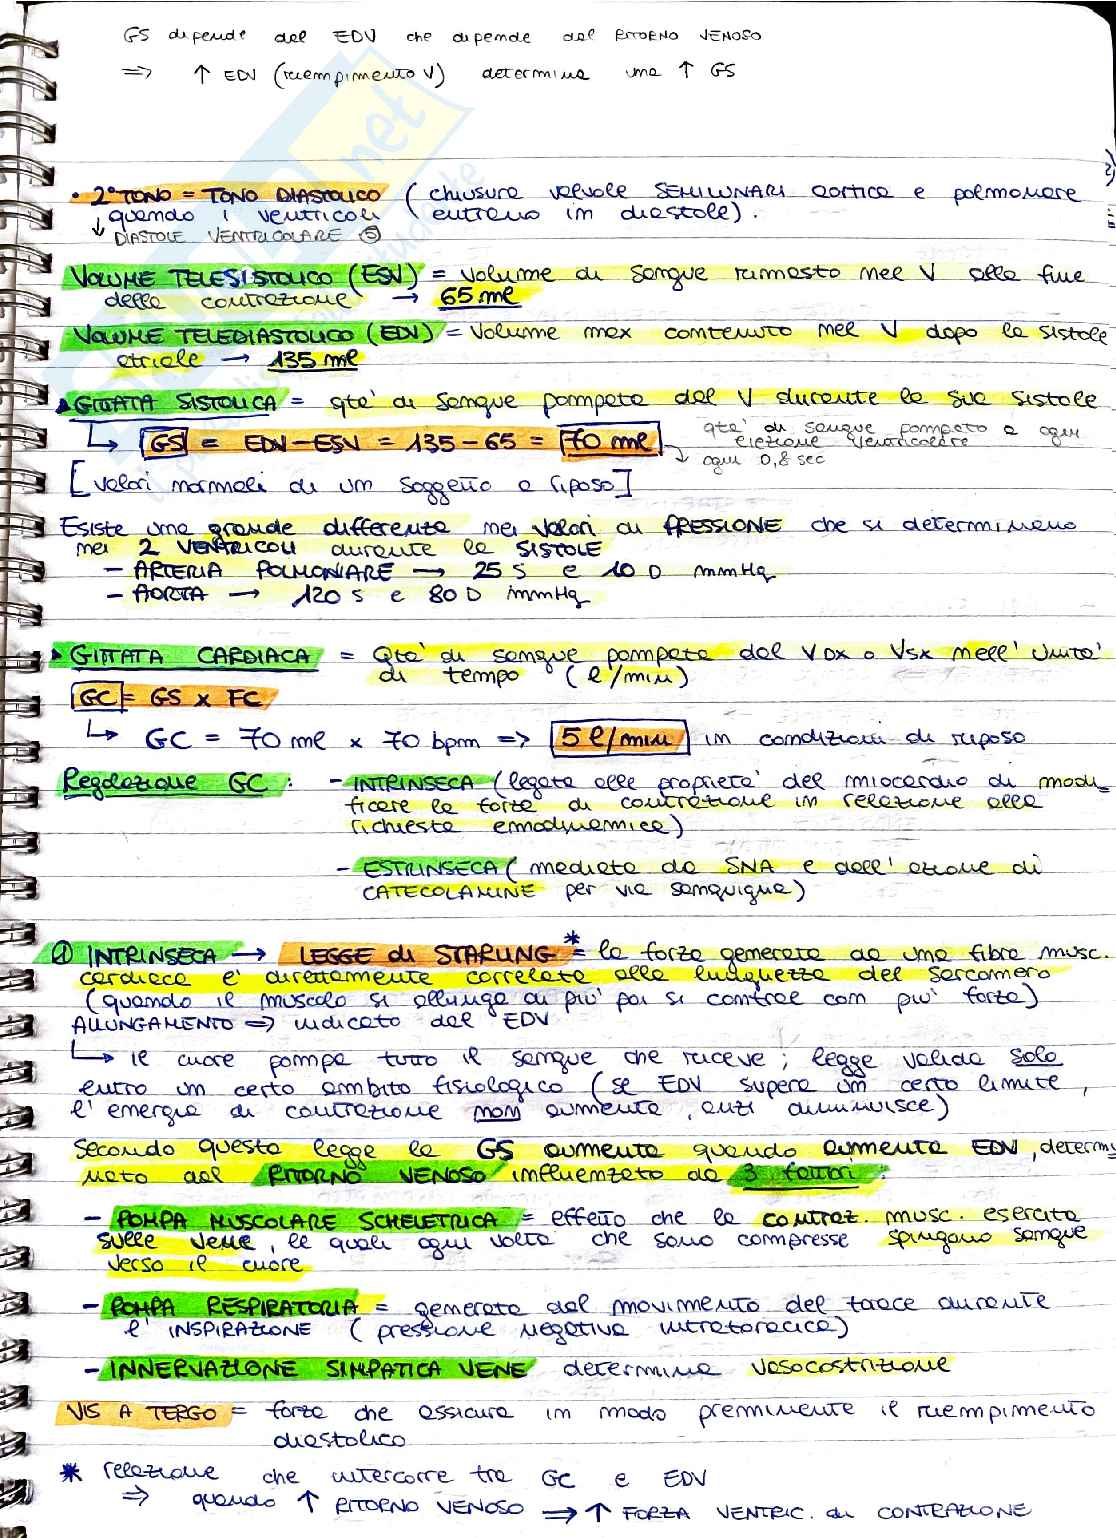 GS dipende dal EDV che dipende dal RITORNO VENOSO
=> ↑ EDV (riempimento V) determina una ↑ GS
• 2° TONO = TONO DIASTOLICO (chiusura valvole SEMILUNARI aortica e polmonare
↓ quando i ventricoli entrano in diastole).
DIASTOLE VENTRICOLARE ⑤
VOLUME TELESISTOLICO (ESV) = volume di sangue rimasto nel V alla fine
della contrazione → 65 ml
VOLUME TELEDIASTOLICO (EDV) = Volume max contenuto nel V dopo la sistole
atriale → 135 ml
GITTATA SISTOLICA = qta' di sangue pompata dal V durante la sua sistole
GS = EDV-ESV = 135-65 = 70 ml → qta' di sangue pompato a ogni
eiezione ventricolare
↓ ogni 0,8 sec
[valori normali di un soggetto a riposo]
Esiste una grande differenza nei valori di PRESSIONE che si determinano
nei 2 VENTRICOLI durante la SISTOLE
- ARTERIA POLMONARE → 25 S e 10 D mmHg
- AORTA → 120 S e 80 D mmHg
GITTATA CARDIACA = Qta' di sangue pompata dal V DX o V SX nell' unita'
di tempo (l/min)
GC = GS x FC
↳ GC = 70 ml x 70 bpm => 5 l/min in condizioni di riposo
Regolazione GC : - INTRINSECA (legata alle proprieta' del miocardio di modi_
ficare la forza di contrazione in relazione alla
richiesta emodinamica)
- ESTRINSECA (mediata da SNA e dall' azione di
CATECOLAMINE per via sanguigna)
① INTRINSECA → LEGGE di STARLING * = la forza generata da una fibra musc.
cardiaca e' direttamente correlata alla lunghezza del sarcomero
(quando il muscolo si allunga di piu' poi si contrae con piu' forza)
ALLUNGAMENTO => indicato dal EDV
↳ il cuore pompa tutto il sangue che riceve ; legge valida solo
entro un certo ambito fisiologico (se EDV supera un certo limite,
l'energia di contrazione non aumenta, anzi diminuisce)
Secondo questa legge la GS aumenta quando aumenta EDV, determi_
nato dal RITORNO VENOSO influenzato da 3 fattori :
- POMPA MUSCOLARE SCHELETRICA = effetto che la contraz. musc. esercita
sulle vene, le quali ogni volta che sono compresse spingono sangue
verso il cuore
- POMPA RESPIRATORIA = generata dal movimento del torace durante
l'INSPIRAZIONE (pressione negativa intratoracica)
- INNERVAZIONE SIMPATICA VENE determina vasocostrizione
VIS A TERGO = forza che assicura in modo preminente il riempimento
diastolico
* relazione che intercorre tra GC e EDV
=> quando ↑ RITORNO VENOSO => ↑ FORZA VENTRIC. di CONTRAZIONE